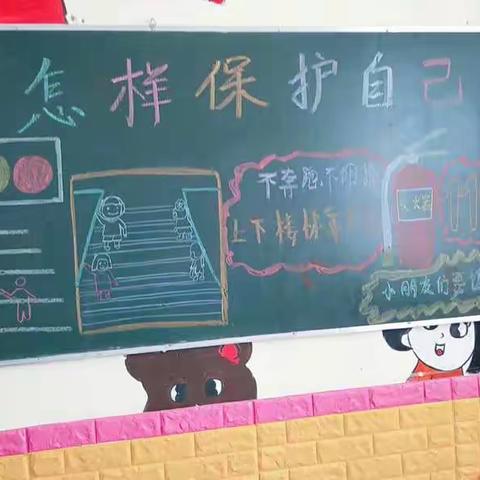 怎样保护自己
不奔跑不
上下楼梯
灭火器
小朋友们要